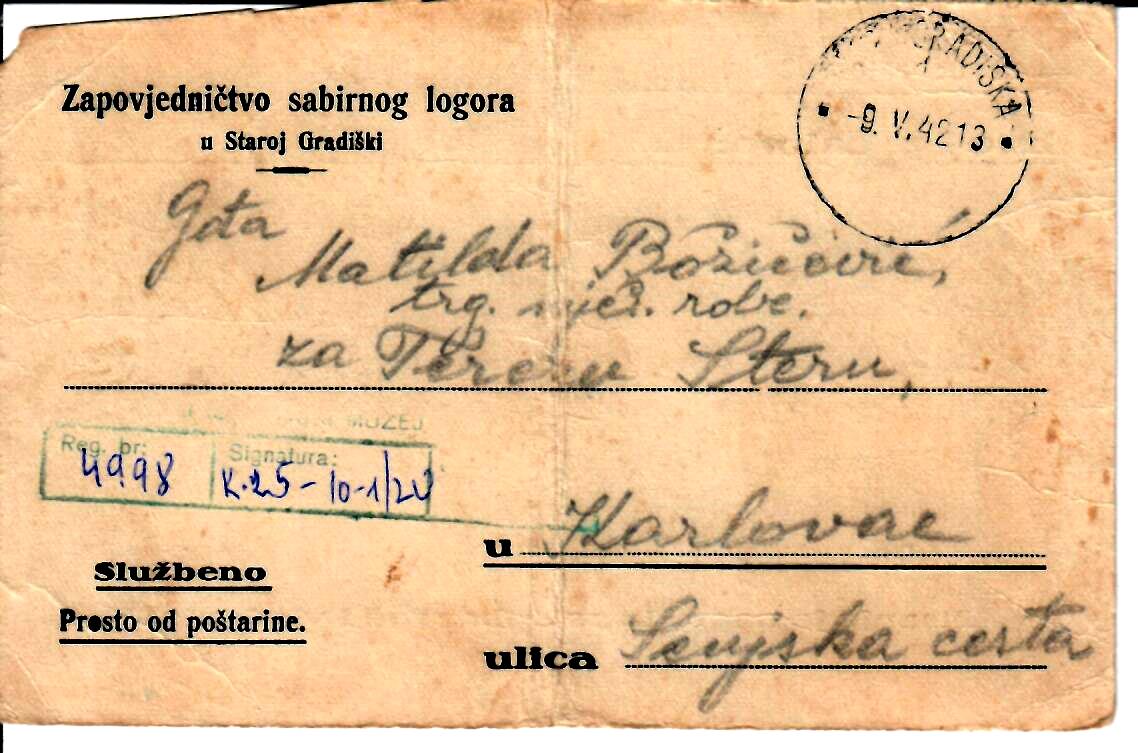 Zapovjedničtvo sabirnog logora
u Staroj Gradiški
GRADIŠKA
-9. V. 42 13
Gđa
Matilda
trg. mješ. robe.
za Terezu Stern,
MUZEJ
Reg. br: Signatura:
4998 K.25-10-1/20
u Karlovac
Službeno
Prosto od poštarine.
ulica Senjska cesta